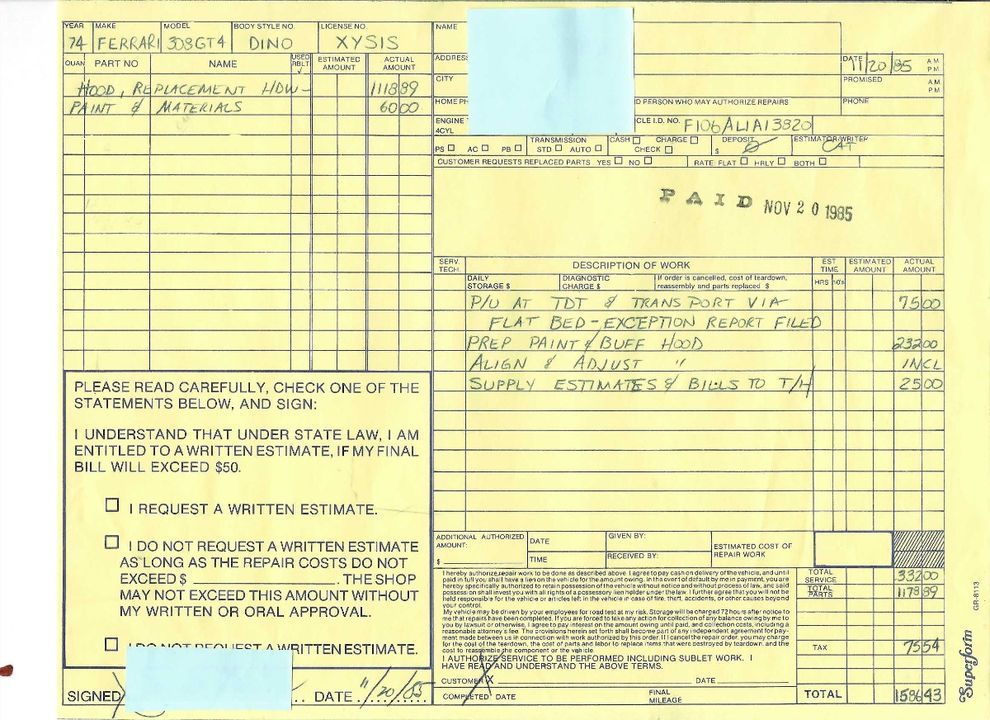 YEAR MAKE MODEL BODY STYLE NO. LICENSE NO.
74 FERRARI 308GT4 DINO XYSIS
QUAN. PART NO NAME USED RBLT ESTIMATED AMOUNT ACTUAL AMOUNT
HOOD, REPLACEMENT HDW- 1118 89
PAINT & MATERIALS 60 00
NAME
ADDRESS
DATE 11/20/85 A M P M
CITY
PROMISED A M P M
HOME PH
D PERSON WHO MAY AUTHORIZE REPAIRS
PHONE
ENGINE
4CYL
CLE I.D. NO. F106AL1A13820
PS AC PB
TRANSMISSION
STD AUTO
CASH CHARGE
CHECK
DEPOSIT
$ Ø
ESTIMATOR/WRITER
CAT
CUSTOMER REQUESTS REPLACED PARTS YES NO RATE: FLAT HRLY BOTH
PAID NOV 20 1985
SERV. TECH. DESCRIPTION OF WORK EST TIME ESTIMATED AMOUNT ACTUAL AMOUNT
DAILY STORAGE $ DIAGNOSTIC CHARGE $ If order is cancelled, cost of teardown, reassembly and parts replaced $ HRS 10's
P/U AT TDT & TRANSPORT VIA 75 00
FLAT BED - EXCEPTION REPORT FILED
PREP PAINT & BUFF HOOD 232 00
ALIGN & ADJUST " INCL
SUPPLY ESTIMATES & BILLS TO T/H 25 00
PLEASE READ CAREFULLY, CHECK ONE OF THE
STATEMENTS BELOW, AND SIGN:
I UNDERSTAND THAT UNDER STATE LAW, I AM
ENTITLED TO A WRITTEN ESTIMATE, IF MY FINAL
BILL WILL EXCEED $50.
I REQUEST A WRITTEN ESTIMATE.
I DO NOT REQUEST A WRITTEN ESTIMATE
AS LONG AS THE REPAIR COSTS DO NOT
EXCEED $ . THE SHOP
MAY NOT EXCEED THIS AMOUNT WITHOUT
MY WRITTEN OR ORAL APPROVAL.
I DO NOT REQUEST A WRITTEN ESTIMATE.
SIGNED DATE 11/20/85
ADDITIONAL AUTHORIZED AMOUNT: $
DATE
TIME
GIVEN BY:
RECEIVED BY:
ESTIMATED COST OF REPAIR WORK
I hereby authorize repair work to be done as described above. I agree to pay cash on delivery of the vehicle, and until
paid in full you shall have a lien on the vehicle for the amount owing. In the event of default by me in payment, you are
hereby specifically authorized to retain possession of the vehicle without notice and without process of law, and said
possession shall invest you with all rights of a possessory lien holder under the law. I further agree that you will not be
held responsible for the vehicle or articles left in the vehicle in case of fire, theft, accidents, or other causes beyond
your control.
My vehicle may be driven by your employees for road test at my risk. Storage will be charged 72 hours after notice to
me that repairs have been completed. If you are forced to take action for collection of any balance owing by me to
you by lawsuit or otherwise, I agree to pay interest on the amount owing until paid, and collection costs, including a
reasonable attorney's fee. The provisions herein set forth shall become part of any independent agreement for pay-
ment made between us in connection with work authorized by this order. If I cancel the repair order, you may charge
for the cost of the teardown, the cost of parts and labor to replace items that were destroyed by teardown, and the
cost to reassemble the component or the vehicle.
I AUTHORIZE SERVICE TO BE PERFORMED INCLUDING SUBLET WORK. I
HAVE READ AND UNDERSTAND THE ABOVE TERMS.
CUSTOMER X DATE
COMPLETED DATE FINAL MILEAGE
TOTAL SERVICE 332 00
TOTAL PARTS 1178 89
TAX 75 54
TOTAL 1586 43
GR-8113
Superform